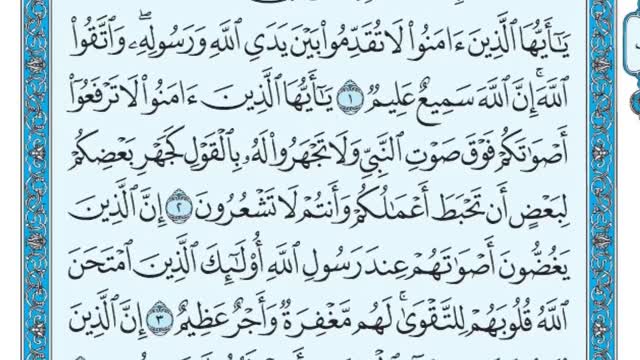 يَٰٓأَيُّهَا ٱلَّذِينَ ءَامَنُوا۟ لَا تُقَدِّمُوا۟ بَيْنَ يَدَىِ ٱللَّهِ وَرَسُولِهِۦ ۖ وَٱتَّقُوا۟
ٱللَّهَ ۚ إِنَّ ٱللَّهَ سَمِيعٌ عَلِيمٌ ١ يَٰٓأَيُّهَا ٱلَّذِينَ ءَامَنُوا۟ لَا تَرْفَعُوٓا۟
أَصْوَٰتَكُمْ فَوْقَ صَوْتِ ٱلنَّبِىِّ وَلَا تَجْهَرُوا۟ لَهُۥ بِٱلْقَوْلِ كَجَهْرِ بَعْضِكُمْ
لِبَعْضٍ أَن تَحْبَطَ أَعْمَٰلُكُمْ وَأَنتُمْ لَا تَشْعُرُونَ ٢ إِنَّ ٱلَّذِينَ
يَغُضُّونَ أَصْوَٰتَهُمْ عِندَ رَسُولِ ٱللَّهِ أُو۟لَٰٓئِكَ ٱلَّذِينَ ٱمْتَحَنَ
ٱللَّهُ قُلُوبَهُمْ لِلتَّقْوَىٰ ۚ لَهُم مَّغْفِرَةٌ وَأَجْرٌ عَظِيمٌ ٣ إِنَّ ٱلَّذِينَ